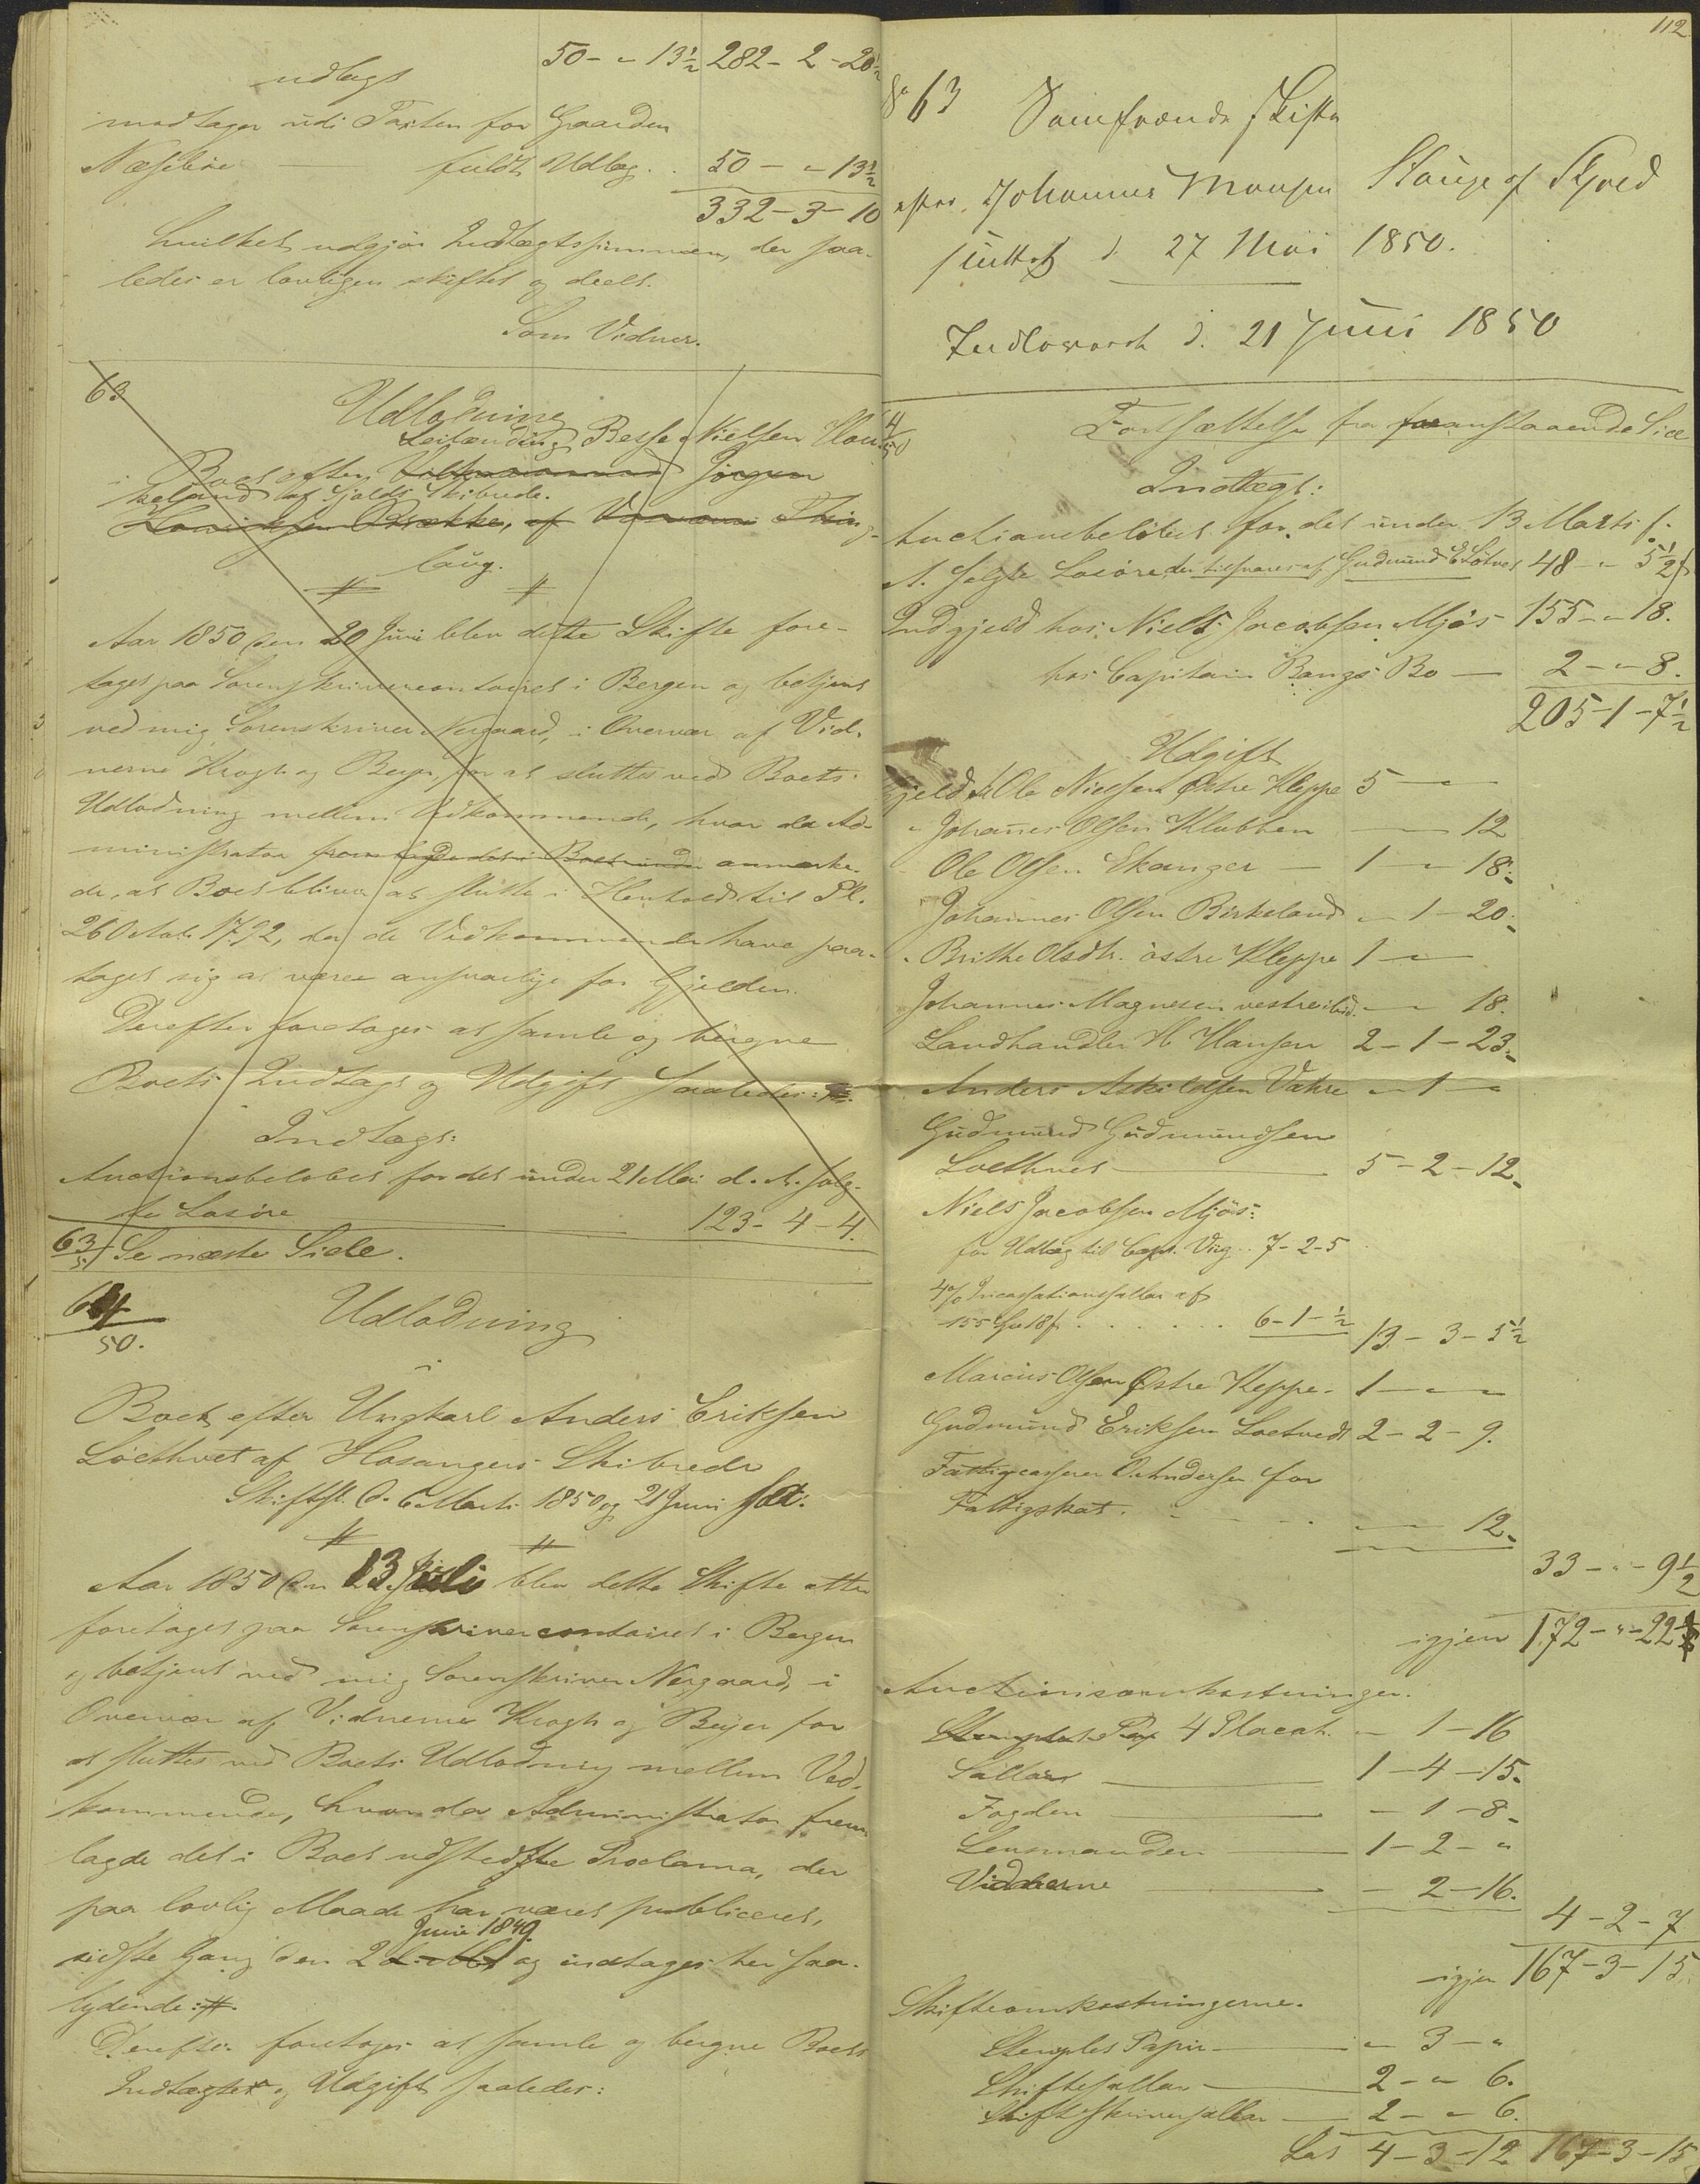 50 - " - 13½ 282 - 2 - 20½
udlagt
modtager udi Taxten for Gaarden
Næseböe — fuldt Udlæg . . 50 - " - 13½
332 - 3 - 10
hvilket udgjør Indtægtssummen, der saa-
ledes er lovligen skiftet og deelt.
Som Vidner.
63
Udlodning
Leilænding Besse Nielsen Hau-
i Boet efter Jörgen
keland af Gjelds Skibrede.
laug.
Aar 1850 den 20 Juni blev dette Skifte fore-
taget paa Sorenskrivercontoiret i Bergen og betjent
ved mig Sorenskriver Nergaard, i Overvær af Vid-
nerne Krogh og Beyer, for at sluttes ved Boets
Udlodning mellem Vedkommende, hvor da Ad-
ministrator fremlagde det i Boet under anmærke-
de, at Boet bliver at slutte i Henhold til Pl.
26 Octob. 1792, da de Vedkommende have paa-
taget sig at være ansvarlige for Gjelden.
Derefter foretages at samle og beregne
Boets Indtægt og Udgift saaledes:
Indtægt:
Auctionsbeløbet for det under 21 Mai d. A. solg-
te Løsöre — 123 - 4 - 4.
63/50 Se næste Side.
64/50.
Udlodning
i
Boet efter Ungkarl Anders Eriksen
Löethvet af Hosangers Skibrede
Skiftet d. 6 Marts 1850 og 21 Juni
Aar 1850 den 13 Juli blev dette Skifte atter
foretaget paa Sorenskrivercontoiret i Bergen
og betjent ved mig Sorenskriver Nergaard, i
Overvær af Vidnerne Krogh og Beyer for
at sluttes ved Boets Udlodning mellem Ved-
kommende, hvor da Administrator frem-
lagde det i Boet udstedte Proclama, der
paa lovlig Maade har været publiceret,
Juni 1849
sidste Gang den 2 og indtages her saa-
lydende:
Derefter foretages at samle og beregne Boets
Indtægter og Udgift saaledes:
112
No 63 Samfrænde Skifte
efter Johannes Monsen Stauge af Skjold
sluttet d. 27 Mai 1850.
Indleveret d. 21 Juni 1850
64/50
Fortsættelse fra foranstaaende Side
Indtægt:
Auctionsbelöbet for det under 13 Marts f.
A. solgte Lösöre der tilsvares af Gudmund E. Lötvet 48 - " - 5½
Indgjeld hos Niels Jacobsen Mjös - 155 - " - 18.
hos Capitain Bangs Bo — 2 - " - 8.
205 - 1 - 7½
Udgift
Gjeld til Ole Nielsen Østre Kleppe 5 - " -
" Johannes Olsen Klubben — 12
- Ole Olsen Ekanger — 1 - " - 18.
Johannes Olsen Birkeland " - 1 - 20.
- Brithe Olsdtr. östre Kleppe 1 - "
Johannes Magnesen vestre ibid. - " - 18.
Landhandler H Hansen 2 - 1 - 23.
Anders Askildsen Vahre " - 1 - "
Gudmund Gudmundsen
Loethvet — 5 - 2 - 12.
Niels Jacobsen Mjös:
for Udlæg til Capt. Vig . . 7 - 2 - 5
4% Incassationssallar af
155 Spd 18 s . . . . . . 6 - 1 - ½ 13 - 3 - 5½
Marcus Olsen Østre Kleppe - 1 - " - "
Gudmund Eriksen Loetvedt 2 - 2 - 9.
Fattigcasserer O. Andersen for
Fattigskat . - - - . - " - 12.
33 - " - 9½
igjen 172 - " - 22
Auctionsomkostninger.
4 Placat. " - 1 - 16
Sallair — 1 - 4 - 15.
Fogden — - 1 - 8 -
Lensmanden — 1 - 2 - "
Vidnerne — - 2 - 16.
4 - 2 - 7
igjen 167 - 3 - 15.
Skifteomkostningerne.
Stemplet Papir — " - 3 - "
Skiftesallar — 2 - " - 6.
Skifteskriversallar — 2 - " - 6.
Lat 4 - 3 - 12 167 - 3 - 15